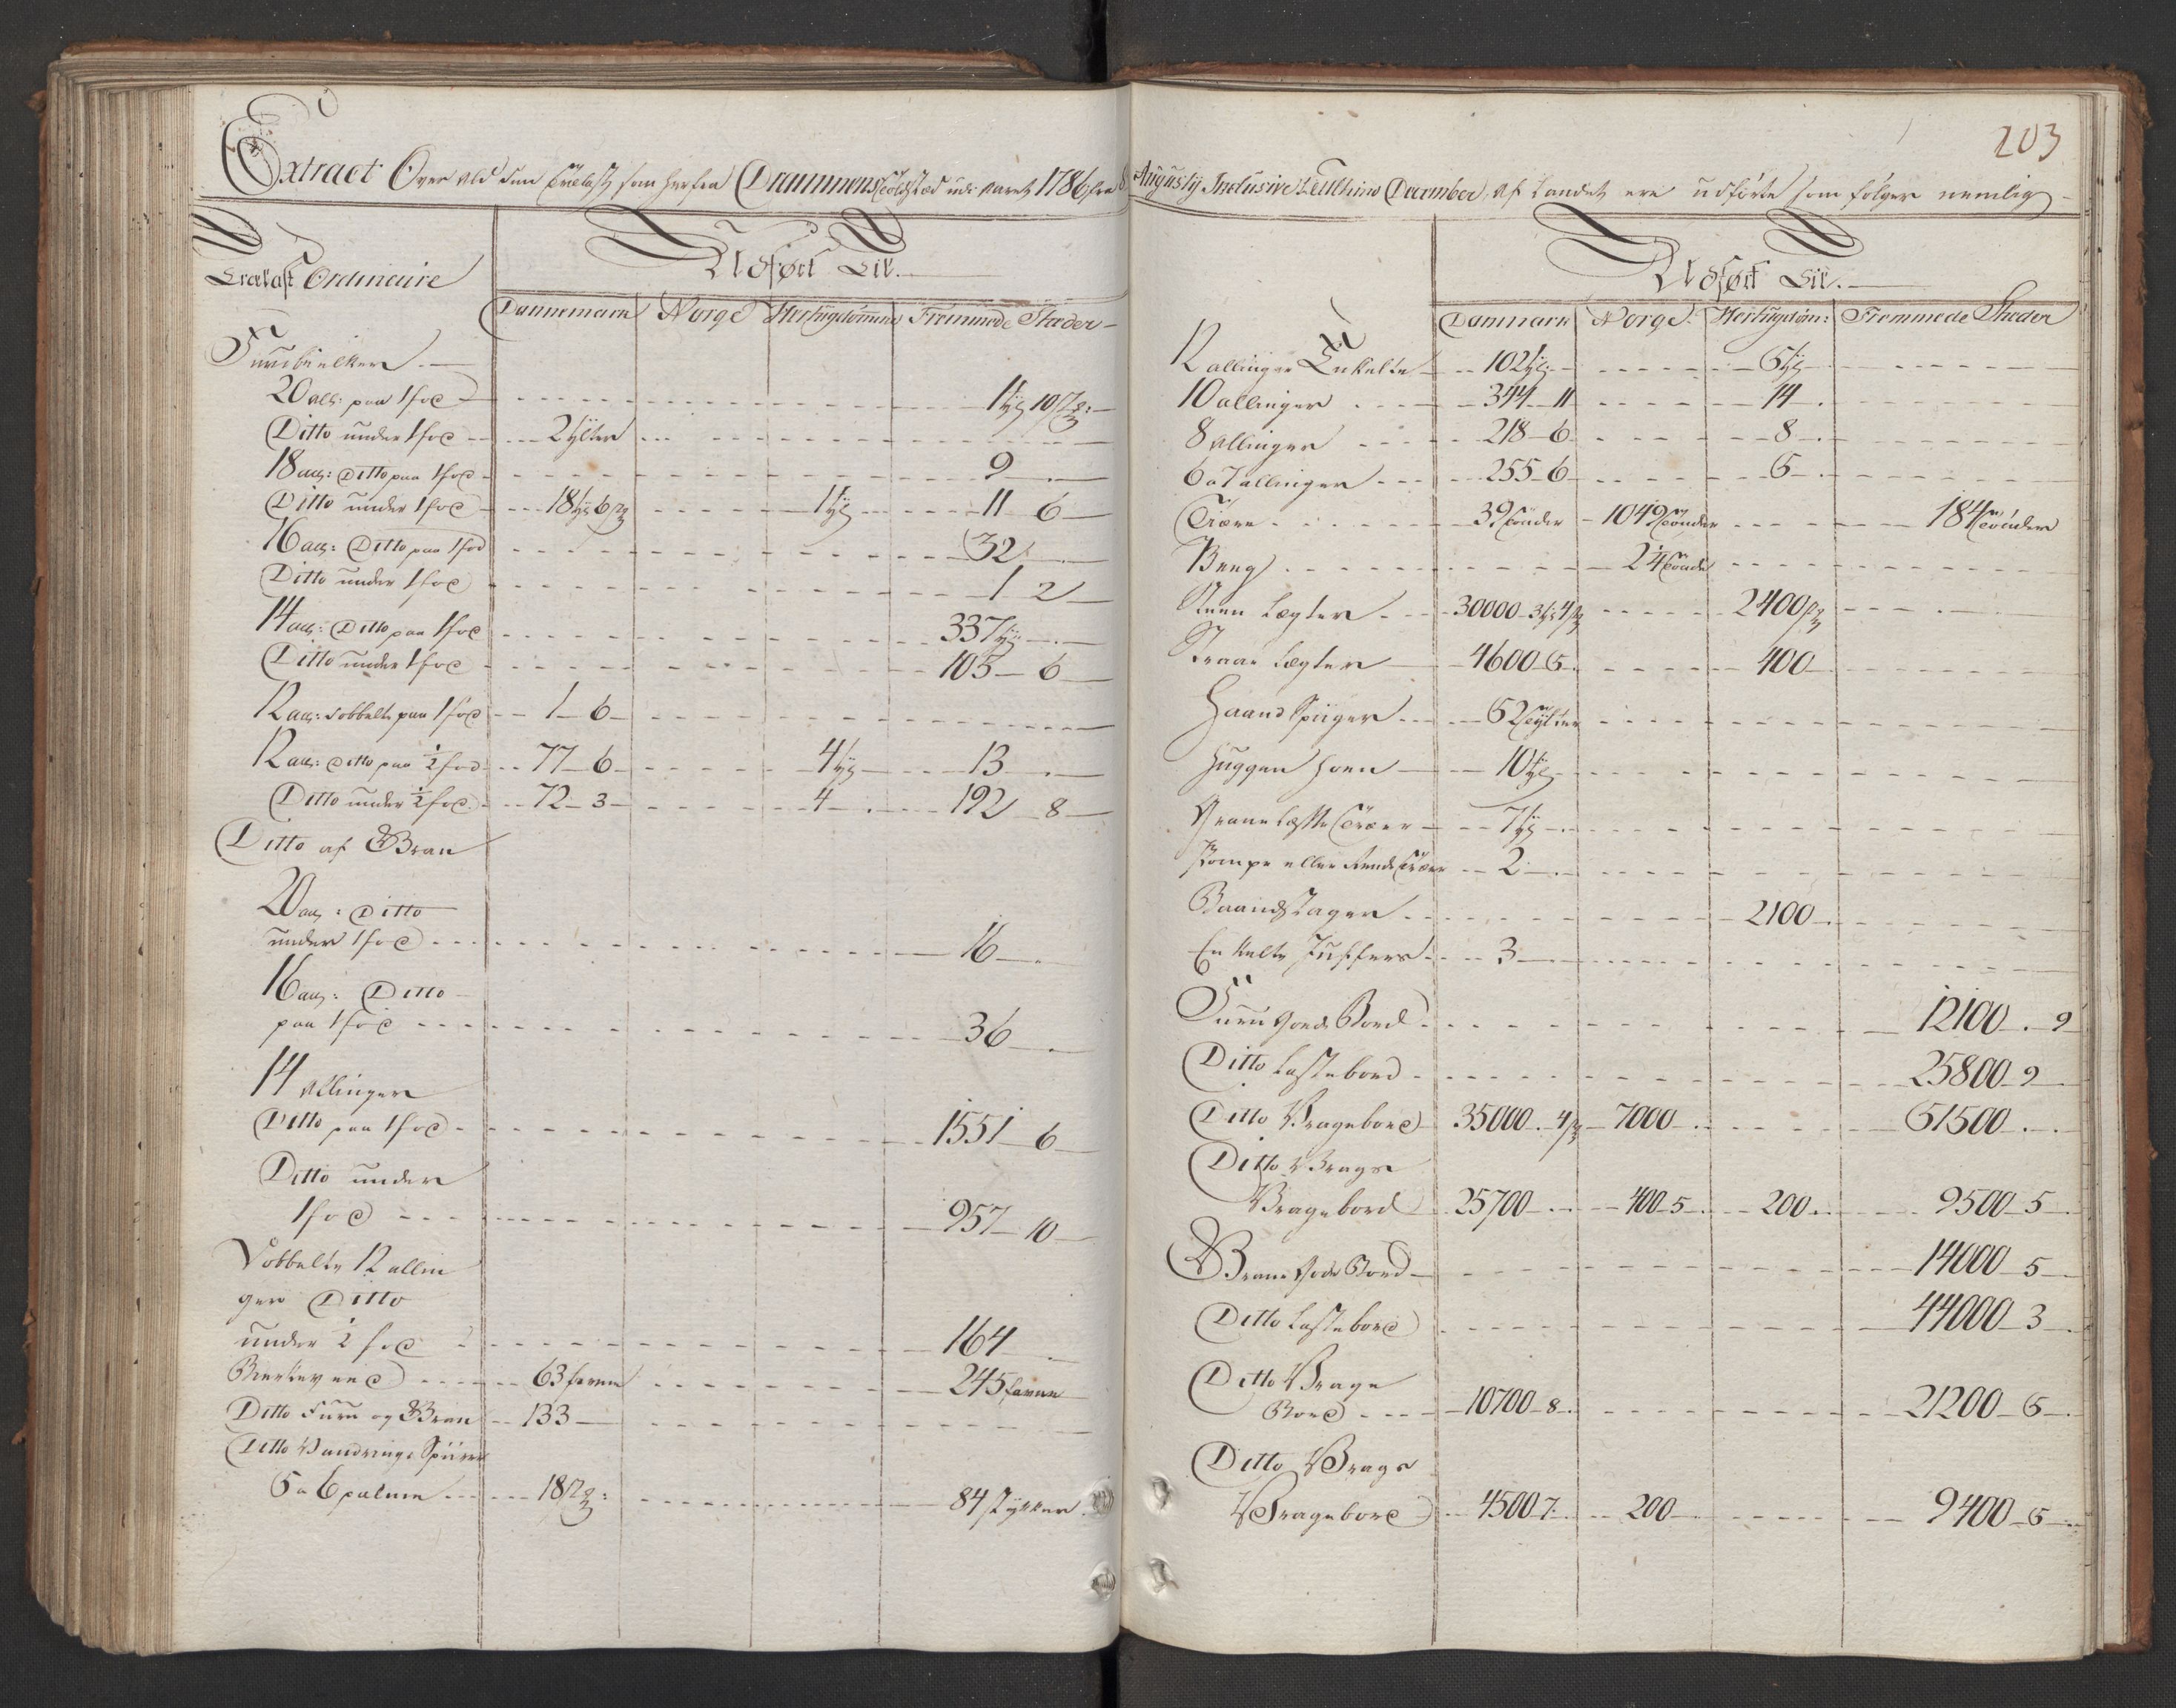 203
Extract Over Ald den Trælast som herfra Drammens Toldsted udi Aaret 1786 fra 8 Augusty Inclusive til Ultimo December, Af Landet ere udførte som følger nemlig
Trælast Ordinaire
Udført Til.
Dannemark Norge Hertugdømmene Fremmede Stæder
Furubielker
20 all: paa 1 fod 1 tyl 10 st:
Ditto under 1 fod 2 tylter
18 all: Ditto paa 1 fod 9
Ditto under 1 fod 18 tyl 6 st 1 tyl 11 6
16 all: Ditto paa 1 fod 32
Ditto under 1 fod 1 2
14 all: Ditto paa 1 fod 337 tyl
Ditto under 1 fod 105 6
12 all: dobbelte paa 1 fod 1 6
12 all: Ditto paa ½ fod 77 6 4 tyl 13
Ditto under ½ fod 72 3 4 192 8
Ditto af Gran
20 all: Ditto
under 1 fod 16
16 all: Ditto
paa 1 fod 36
14 Allinger
Ditto paa 1 fod 1551 6
Ditto under
1 fod 957 10
Dobbelte 12 allin
ger Ditto
under ½ fod 164
Birkeveed 63 favne 245 favne
Ditto Furu og Gran 133
Ditto Vandrings Spiirer
5 a 6 palme 18 st: 84 stykker
Udført Til.
Danmark Norge Hertugdøm: Fremmede Stæder
12 allinger Enkelte 102 tyl 5 tyl
10 allinger 344 11 14
8 Allinger 218 6 8
6 a 7 allinger 255 6 5
Tiære 39 Tønder 1049 Tønder 184 Tønder
Beeg 24 Tønde
Steen Lægter 30000 3 tyl 4 st 2400 st
Straae Lægter 4600 5 400
Haand Spiiger 52 Tylter
Huggen Hoen 10 tyl
Grane Læste Træer 7 tyl
Pompe eller Rende Træer 2
Baandstager 2100
Enkelte Juffers 3
Furu Gode Bord 12100 9
Ditto Lastebord 25800 9
Ditto Vragebord 35000 4 st 7000 61500
Ditto Vrags
Vragebord 25700 400 5 200 9500 5
Grane Gode Bord 14000 5
Ditto Lastebord 44000 3
Ditto Vrage
Bord 10700 8 21200 6
Ditto Vrags
Vragebord 4500 7 200 9400 6